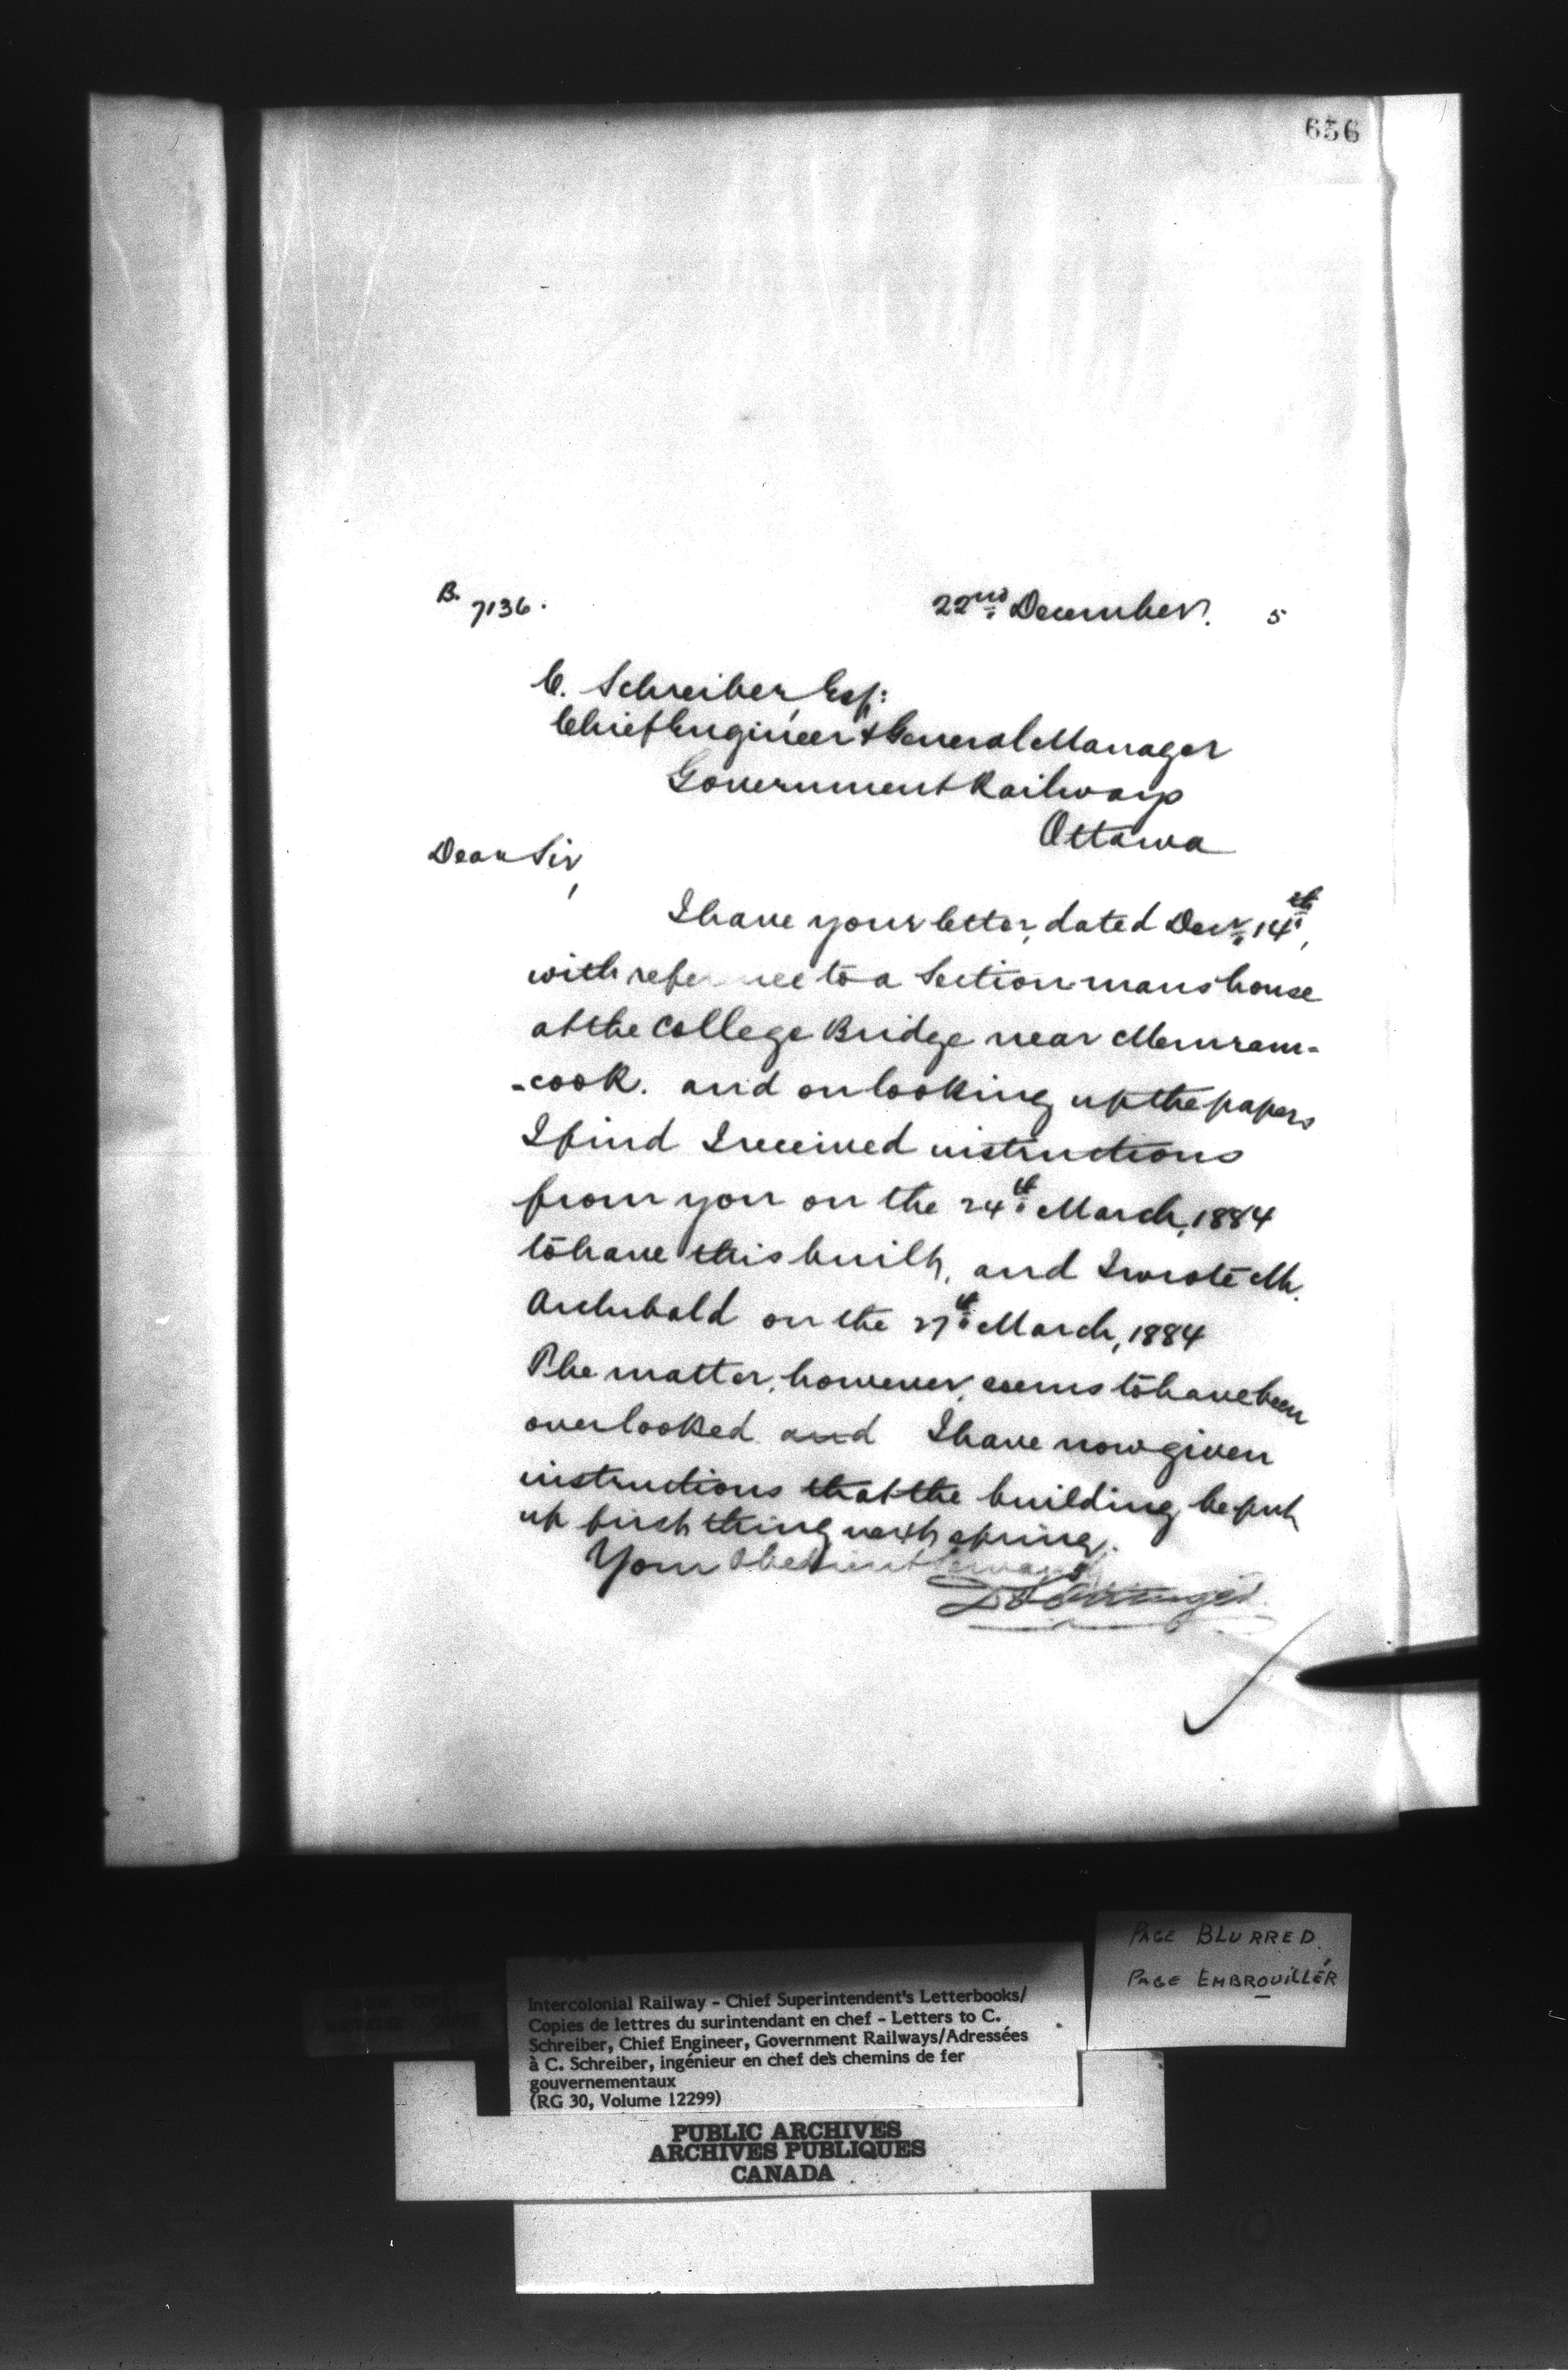 656
B. 7136.
22nd December. 5
C. Schreiber, Esq:
Chief Engineer & General Manager
Government Railways
Ottawa
Dear Sir,
I have your letter, dated Decr. 14th,
with reference to a Section mans house
at the College Bridge near Memram-
-cook. and on looking up the papers
I find I received instructions
from you on the 24th March, 1884
to have this built, and I wrote Mr.
Archibald on the 27th March, 1884
The matter, however, seems to have been
overlooked and I have now given
instructions that the building be put
up first thing next spring.
Your Obedient Servant
D Pottinger
PAGE BLURRED
PAGE EMBROUILLÉR
Intercolonial Railway - Chief Superintendent's Letterbooks/
Copies de lettres du surintendant en chef - Letters to C.
Schreiber, Chief Engineer, Government Railways/Adressées
à C. Schreiber, ingénieur en chef des chemins de fer
gouvernementaux
(RG 30, Volume 12299)
PUBLIC ARCHIVES
ARCHIVES PUBLIQUES
CANADA